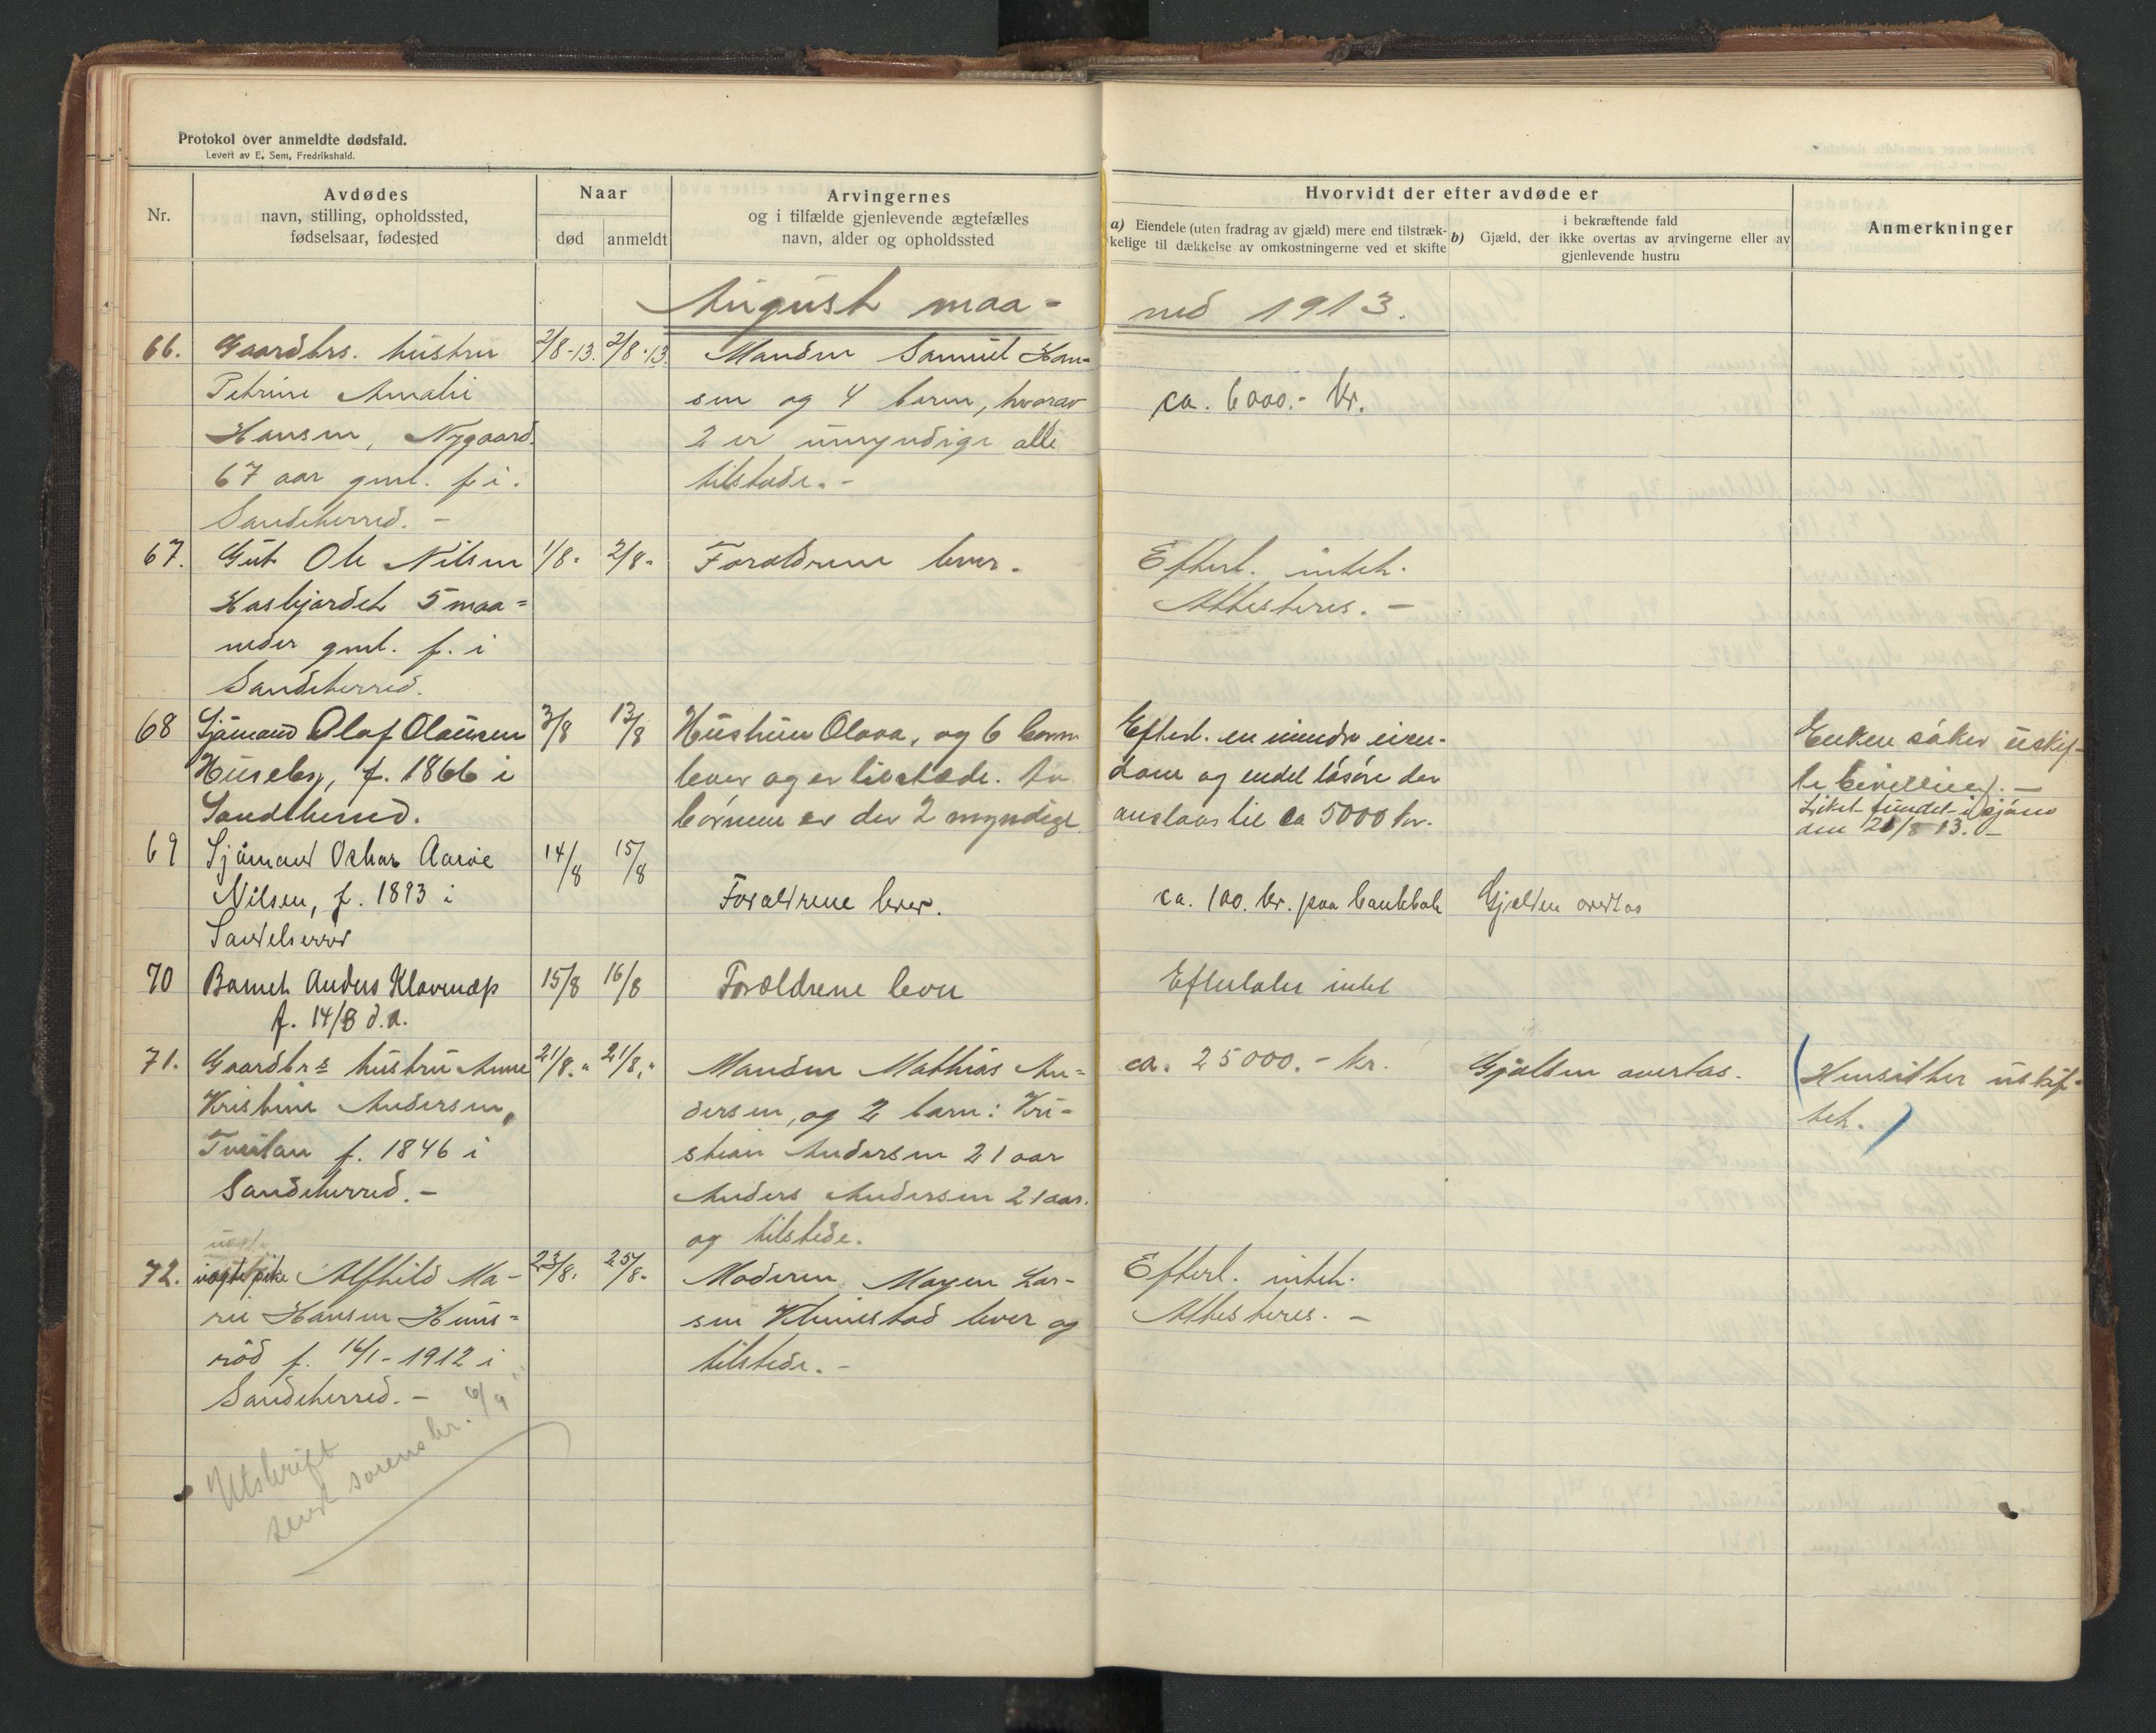 Protokol over anmeldte dødsfald.
Levert av E. Sem, Fredrikshald.
Nr.
Avdødes
navn, stilling, opholdssted,
fødselsaar, fødested
Naar
død
anmeldt
Arvingernes
og i tilfælde gjenlevende ægtefælles
navn, alder og opholdssted
Hvorvidt der efter avdøde er
a) Eiendele (uten fradrag av gjæld) mere end tilstræk-
kelige til dækkelse av omkostningerne ved et skifte
b)
i bekræftende fald
Gjæld, der ikke overtas av arvingerne eller av
gjenlevende hustru
Anmerkninger
August maa=
ned 1913.
66.
Gaardbrs. hustru
Petrine Amalie
Hansen, Nygaard.
67 aar gml. f. i.
Sandeherred. -
2/8-13.
2/8-13.
Manden Samuel Han=
sen og 4 barn, hvorav
2 er umyndige alle
tilstede. -
ca. 6000.- kr.
67.
Gut Ole Nilsen
Hasbjordet 5 maa=
neder gml. f. i
Sandeherred.
1/8.
2/8.
Forældrene lever.
Efterl. intet.
Attesteres. -
68
Sjømand Olaf Olausen
Huseby, f. 1866 i
Sandeherred.
3/8
13/8
Hustru Olava, og 6 barn
lever og er tilstæde. Av
børnene er der 2 myndige
Efterl. en mindre eien-
dom og endel løsøre der
anslaas til ca 5000 kr.
Enken søker uskif-
te bevilling. -
Liket fundet i sjøen
den 21/8 13. -
69
Sjømand Oskar Aarøe
Nilsen, f. 1893 i
Sandeherred
14/8
15/8
Forældrene lever.
ca. 100. kr. paa bankbok
Gjælden overtas
70
Barnet Anders Klavenæs
f. 14/8 d.a.
15/8
16/8
Forældrene lever
Efterlater intet
71.
Gaardbrs hustru Anne
Kristine Andersen,
Tveitan f. 1846 i
Sandeherred. -
21/8."
21/8."
Manden Mathias An=
dersen, og 2 barn: Kri-
stian Andersen 21 aar
Anders Andersen 21 aar.
og tilstede.
ca. 25000.- kr.
Gjælden overtas.
Hensitter uskif-
tet.
72.
uegte
uægte pike Alfhild Ma-
rie Hansen Huns=
rød f. 16/1-1912 i
Sandeherred. -
23/8.
25/8.
Moderen Mayen Lar-
sen Klinestad lever og
tilstede. -
Efterl. intet.
Attesteres. -
Utskrift
sendt sorenskr. 6/9